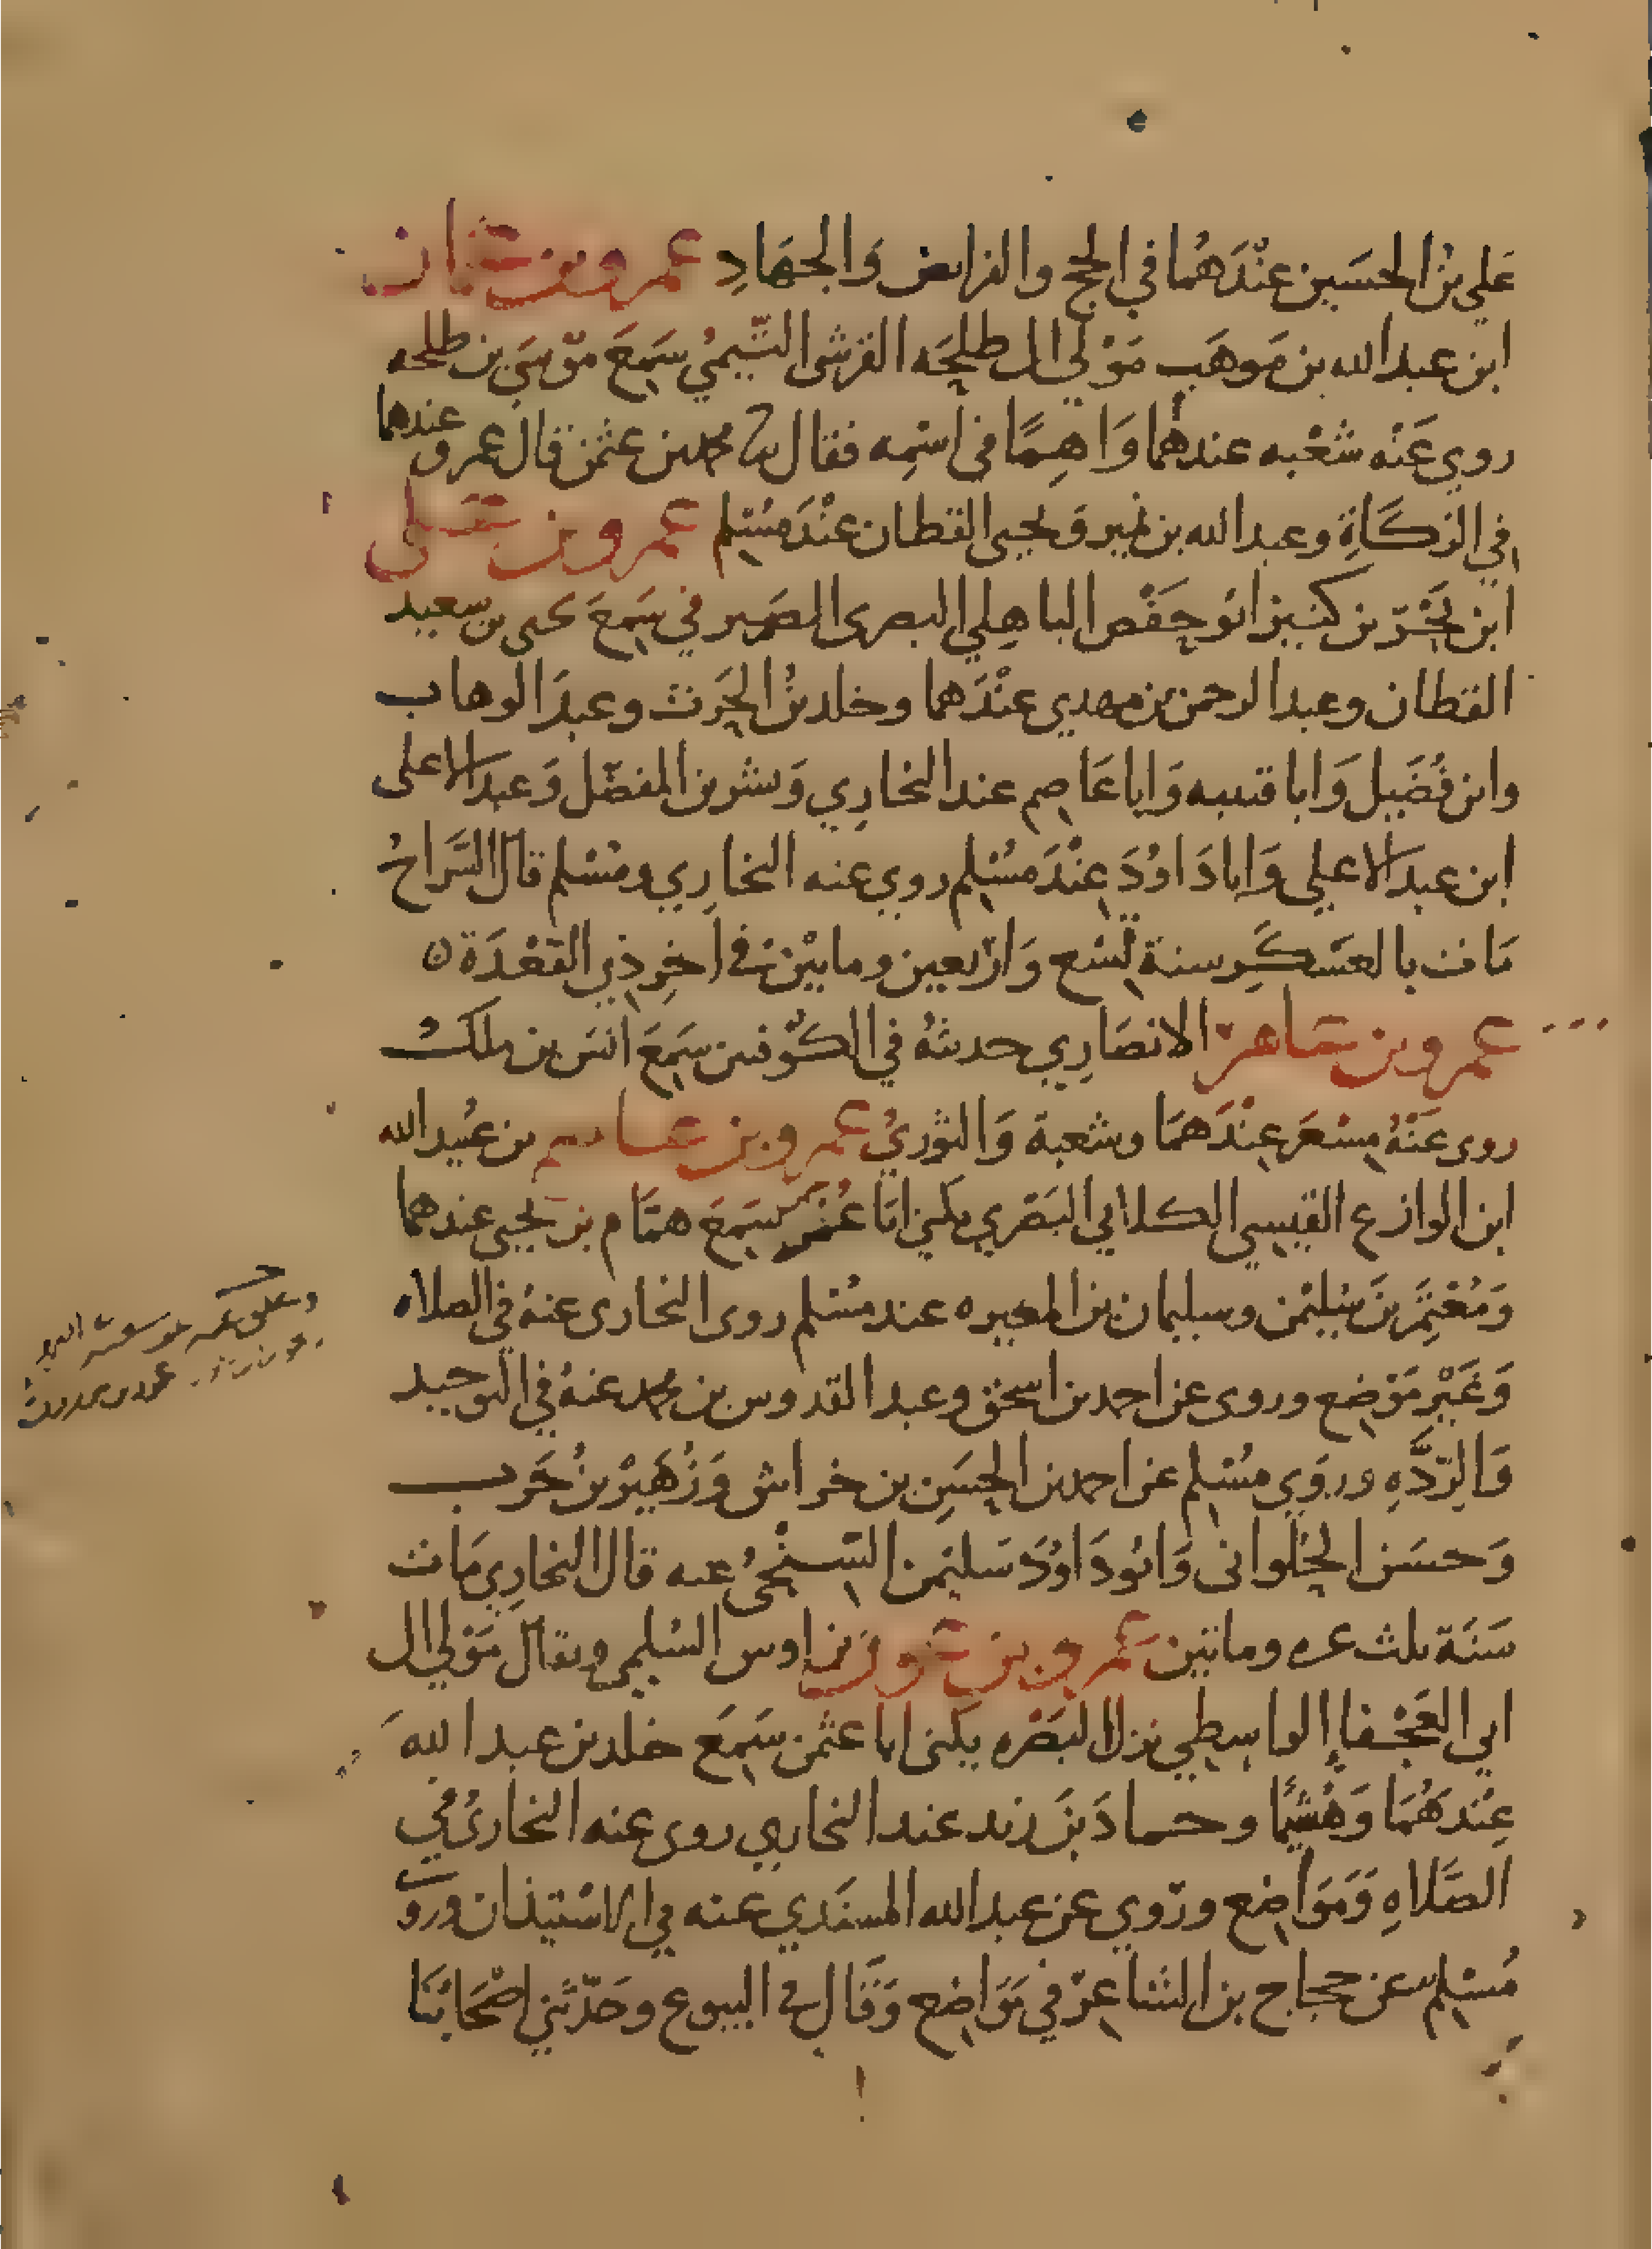 عَلي بنُ الحسَين عنْدَهُمَا في الحج والفرايض وَالجهَادِ عمرو بن عثمان
ابن عبد الله بن مَوهَب مَوْلي ال طلحَه القرشى التَّيميُ سَمِعَ مُوْسَي بن طلحه
روي عَنْه شعْبه عندهما وَاهِمًا فى اسْمِه فقال محمد بن عثمن قال عمرو عندهما
في الزكَاةِ وعبد الله بن نمير ويحيى القطان عنْدَ مسْلم عمرو بن علي
ابن بَحْر بن كنيز ابُو حَفْص الباهِلي البصرى الصَير في سَمِعَ يحيى بن سعيد
القطان وعبد الرحمن بن مهدي عنْدَهما وخلد بنُ الحَرث وعبدَ الوهاب
وابن فُضَيل وَابا قتيبه وَابا عَاصِم عند البخارِي وَبشر بن المفضّل وَعبدَ الاعلى
ابن عبد الاعلي وَابا دَاوُدَ عِنْدَ مسُلم روي عنه البخارِي ومسْلم قال السَّراجُ
مَات بالعسْكَرِ سنة تسْع وَارْبعين ومايتين في اخِر ذِي القعْدَة ن
عمرو بن عامر الانصَارِي حديثهُ في الكوُفيين سَمِعَ انسَ بن ملكُ
روى عَنْهُ مِسْعَر عِنْدَهمَا وشعبة وَالثوْريُ عمرو بن عاصم بن عُبيد الله
ابن الوازع القيسي الكلابي البَصْري يكني ابَا عُثمن سَمِعَ همَّام بن يحيى عندهما
وَمُعْتَمِرَ بنَ سُليْمن وسليمان بن المغيره عند مسْلم روى البخارى عنهُ في الصلاه
وَغَيْرِ مَوْضِع وروى عن احمد بن اسحق وعبد القدوس بن محمد عنهُ في التوحيد
وَالرّدَّهِ وروَي مسُلم عن احمد بن الحسَنِ بن خراش وَزُهَيْر بنُ حَرب
وَحسَن الحُلوانى وَابُو دَاوُدَ سَليْمن السَّنْجيُ عنه قال البخارِي مَات
سَنَة ثلث عشره ومايتين عَمرو بن عون بن اوس السُلمي ويقال مَوْلي ال
ابي العَجْفاءِ الواسِطي نزل البَصْره يكنى ابا عثمن سَمِعَ خلد بن عبد الله
عِنْدَهُمَا وَهُشَيْمًا وحمادَ بنَ زيد عند البخاري روى عنه البخارىُ في
الصَّلاهِ وَمَوَاضِع ورَوي عن عبد الله المسنَدي عنه في الاسْتيذان وروى
مُسْلم عن حجاج بن الشَّاعِر في مَوَاضِع وَقَال في البيوع وحَدّثني اصْحَابُنَا